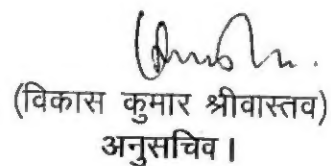 (विकास कुमार श्रीवास्तव)
अनुसचिव।